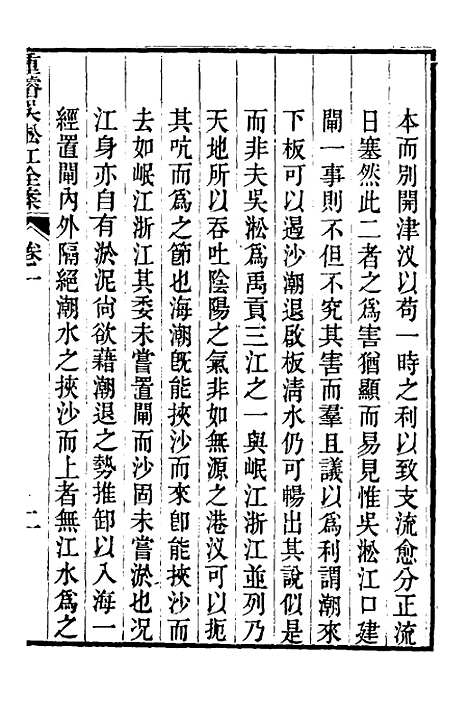 本而別開津汊以苟一時之利以致支流愈分正流
日塞然此二者之為害猶顯而易見惟吳淞江口建
閘一事則不但不究其害而羣且議以為利謂潮來
下板可以遏沙潮退啟板清水仍可暢出其說似是
而非夫吳淞為禹貢三江之一與岷江浙江並列乃
天地所以吞吐陰陽之氣非如無源之港汊可以扼
其吭而為之節也海潮旣能挾沙而來卽能挾沙而
去如岷江浙江其委未嘗置閘而沙固未嘗淤也况
江身亦自有淤泥尙欲藉潮退之勢推卸以入海一
經置閘內外隔絕潮水之挾沙而上者無江水為之
重濬吳淞江全案
卷二
二